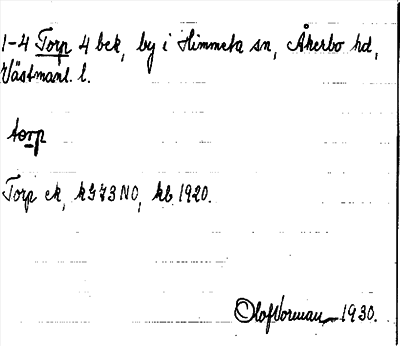 1-4 Torp 4 bek, by i Himmeta sn, Åkerbo hd,
Västmanl. l.
torp
Torp ek, kG73NO, kb. 1920.
Olof Norman 1930.